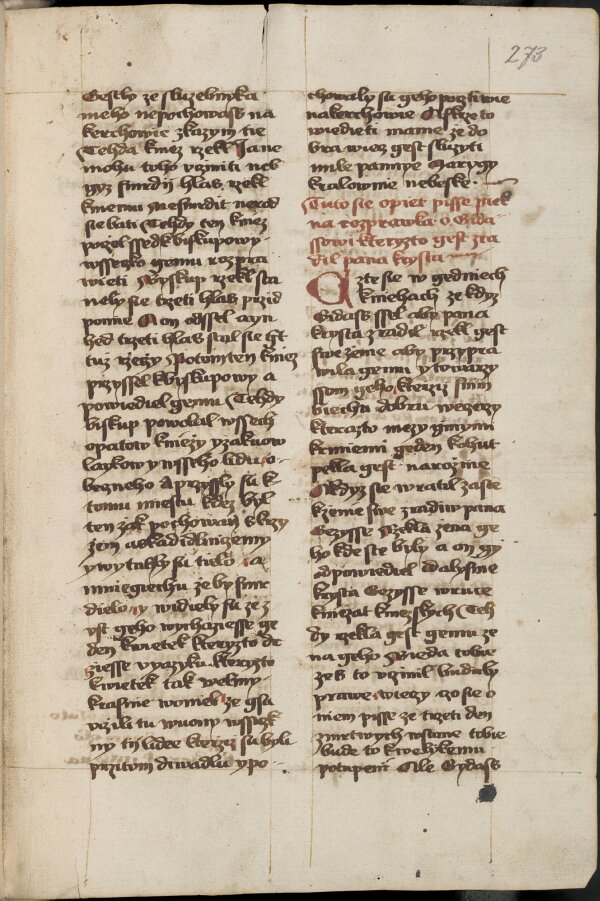 273
Gestly ze sluzebnika
meho nepochowass na
kerchowie zkazym tie
Tehda kniez rzekl Ja ne
mohu toho vcziniti neb
gyz smrdij hlas rzekl
kniemu nesmrdit nerod
sie bati Tehdy ten kniez
ssedk biskupowy
wsseczko gemu rozpra
wieti Byskup rzekl sta
neliy sie trzeti hlas przid
ponie A on odssel a yn
hed trzeti hlas stal sie
tuz rzeczy Potom ten kniez
przyssel kbyskupowy a
powiediel gemu Tehdy
biskup powolal wssech
opatow kniezy y zakuow
laykow y wsseho lidu o
becneho A przyssly su k
tomu miestu kdez byl
ten zak pochowan s krzy
zem a s kadidlnicziemy
y wytahly su tielo a
mniegiechu ze by smr
dielo y widiely su ze z
vst geho wychaziesse ge
den kwietek kteryzto dr
ziesse v yazyku kteryzto
kwietek tak welmy
krasnie woniel ze gsa
vzili tu wuony wssiczk
ny tij lidee kterziz su byli
przitom diwadlu y po
chowaly su geho poctiwie
na kerchowie A skrze to
wiedieti mame ze do
bra wiecz gest sluzyti
mile pannye Marygy
kralownie nebeske
Tuto sie opiet pisse piek
na rozprawka o Gida
ssowi kteryzto gest zra
dil pana krysta
Czte sie w gedniech
kniehach ze kdyz
Gidass ssel aby pana
krysta zradil rzekl gest
swe zenie aby przypra
wila gemu y towarzy
ssom geho kterziz s nim
biechu dobru weczerzy
kterazto mezy ginymi
krmiemi geden kohut
pekla gest na rozynie
A kdyz sie wratil zasie
k zenie swe zradiw pana
Gezysse Rzekla zena ge
ho kde ste byly a on gij
odpowiediel dalysme
krysta Gezysse w ruce
kniezat knezskych Teh
dy rzekla gest gemu ze
na geho Bieda tobie
zes to vczinil budaly
prawe wieczy czo sie o
niem pisse ze trzeti den
z mrtwych wstane tobie
bude to k welikemu
potupeni Ale Gydass